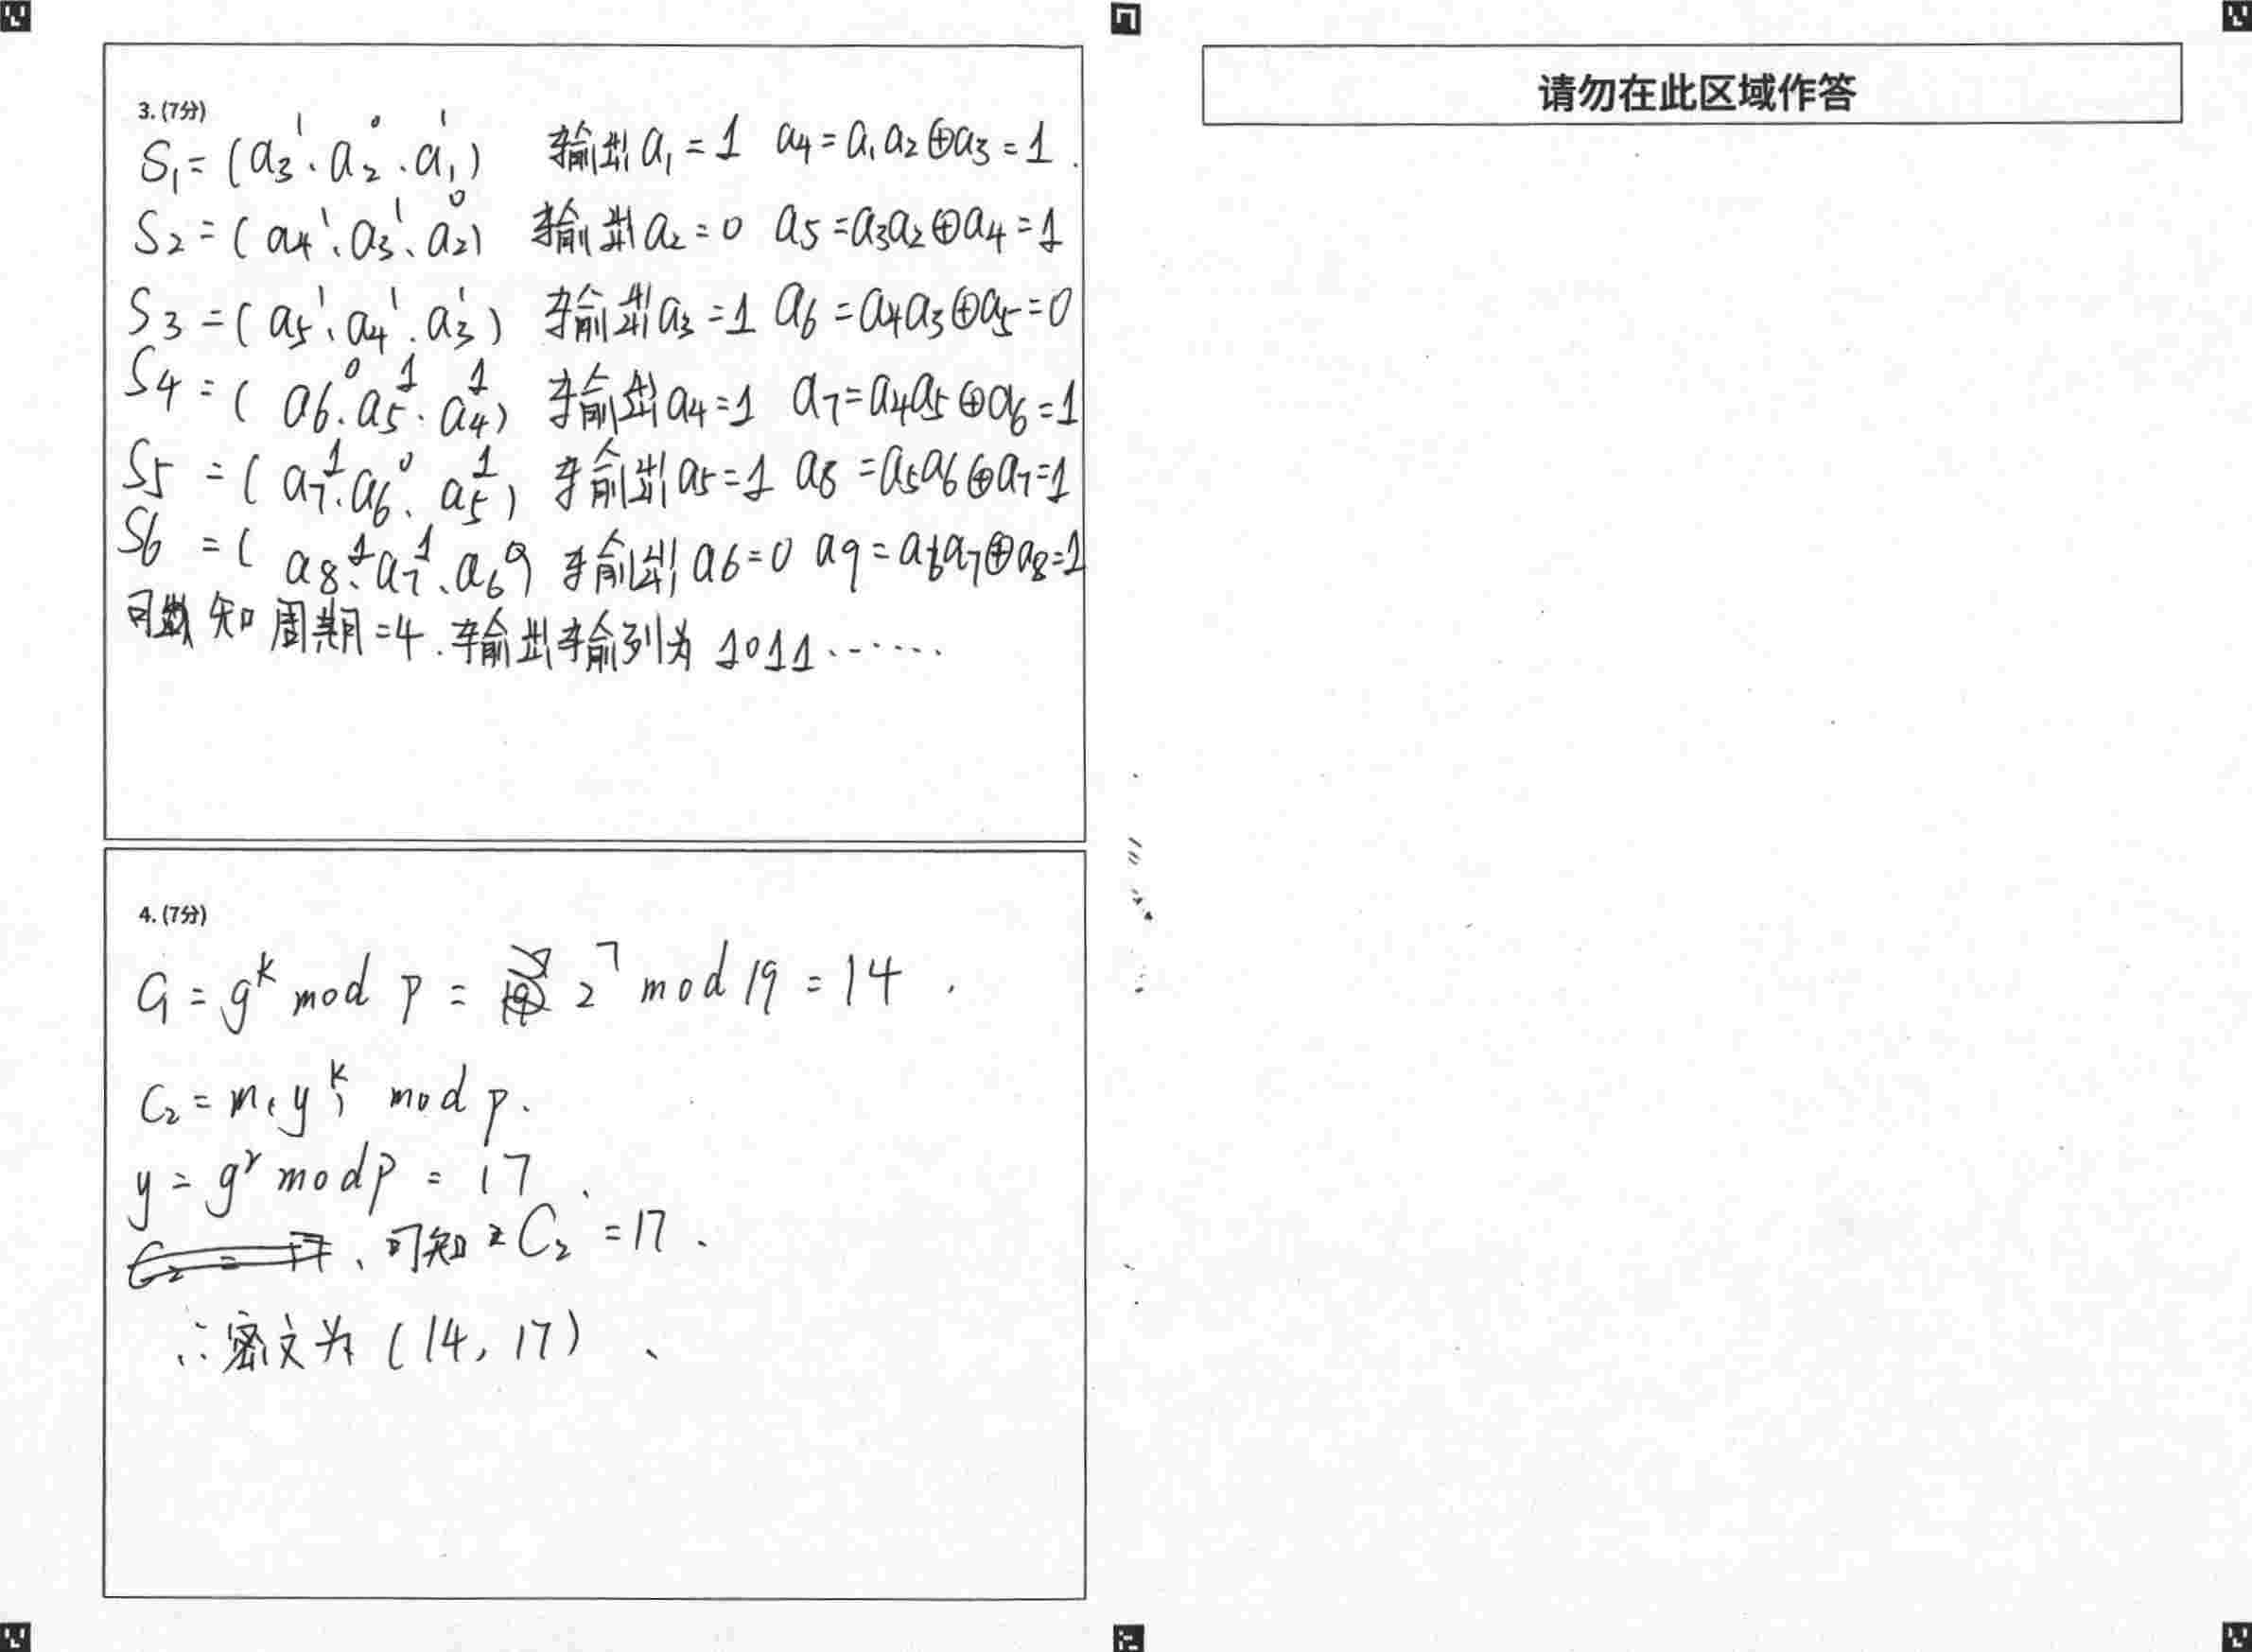 3. (7分)
S₁ = (a₃¹、a₂⁰、a₁¹) 输出a₁ = 1 a₄ = a₁a₂⊕a₃ = 1.
S₂ = (a₄¹、a₃¹、a₂⁰) 输出a₂ = 0 a₅ = a₃a₂⊕a₄ = 1
S₃ = (a₅¹、a₄¹、a₃¹) 输出a₃ = 1 a₆ = a₄a₃⊕a₅ = 0
S₄ = (a₆⁰、a₅¹、a₄¹) 输出a₄ = 1 a₇ = a₄a₅⊕a₆ = 1
S₅ = (a₇¹、a₆⁰、a₅¹) 输出a₅ = 1 a₈ = a₅a₆⊕a₇ = 1
S₆ = (a₈¹、a₇¹、a₆⁰) 输出a₆ = 0 a₉ = a₆a₇⊕a₈ = 1
可知周期 = 4. 输出输列为 1011……
4. (7分)
C₁ = gᵏ mod p = 2⁷ mod 19 = 14.
C₂ = m(yᵏ) mod p.
y = gʳ mod p = 17.
C₂ = 17、可知 C₂ = 17.
∴密文为 (14, 17)、
请勿在此区域作答